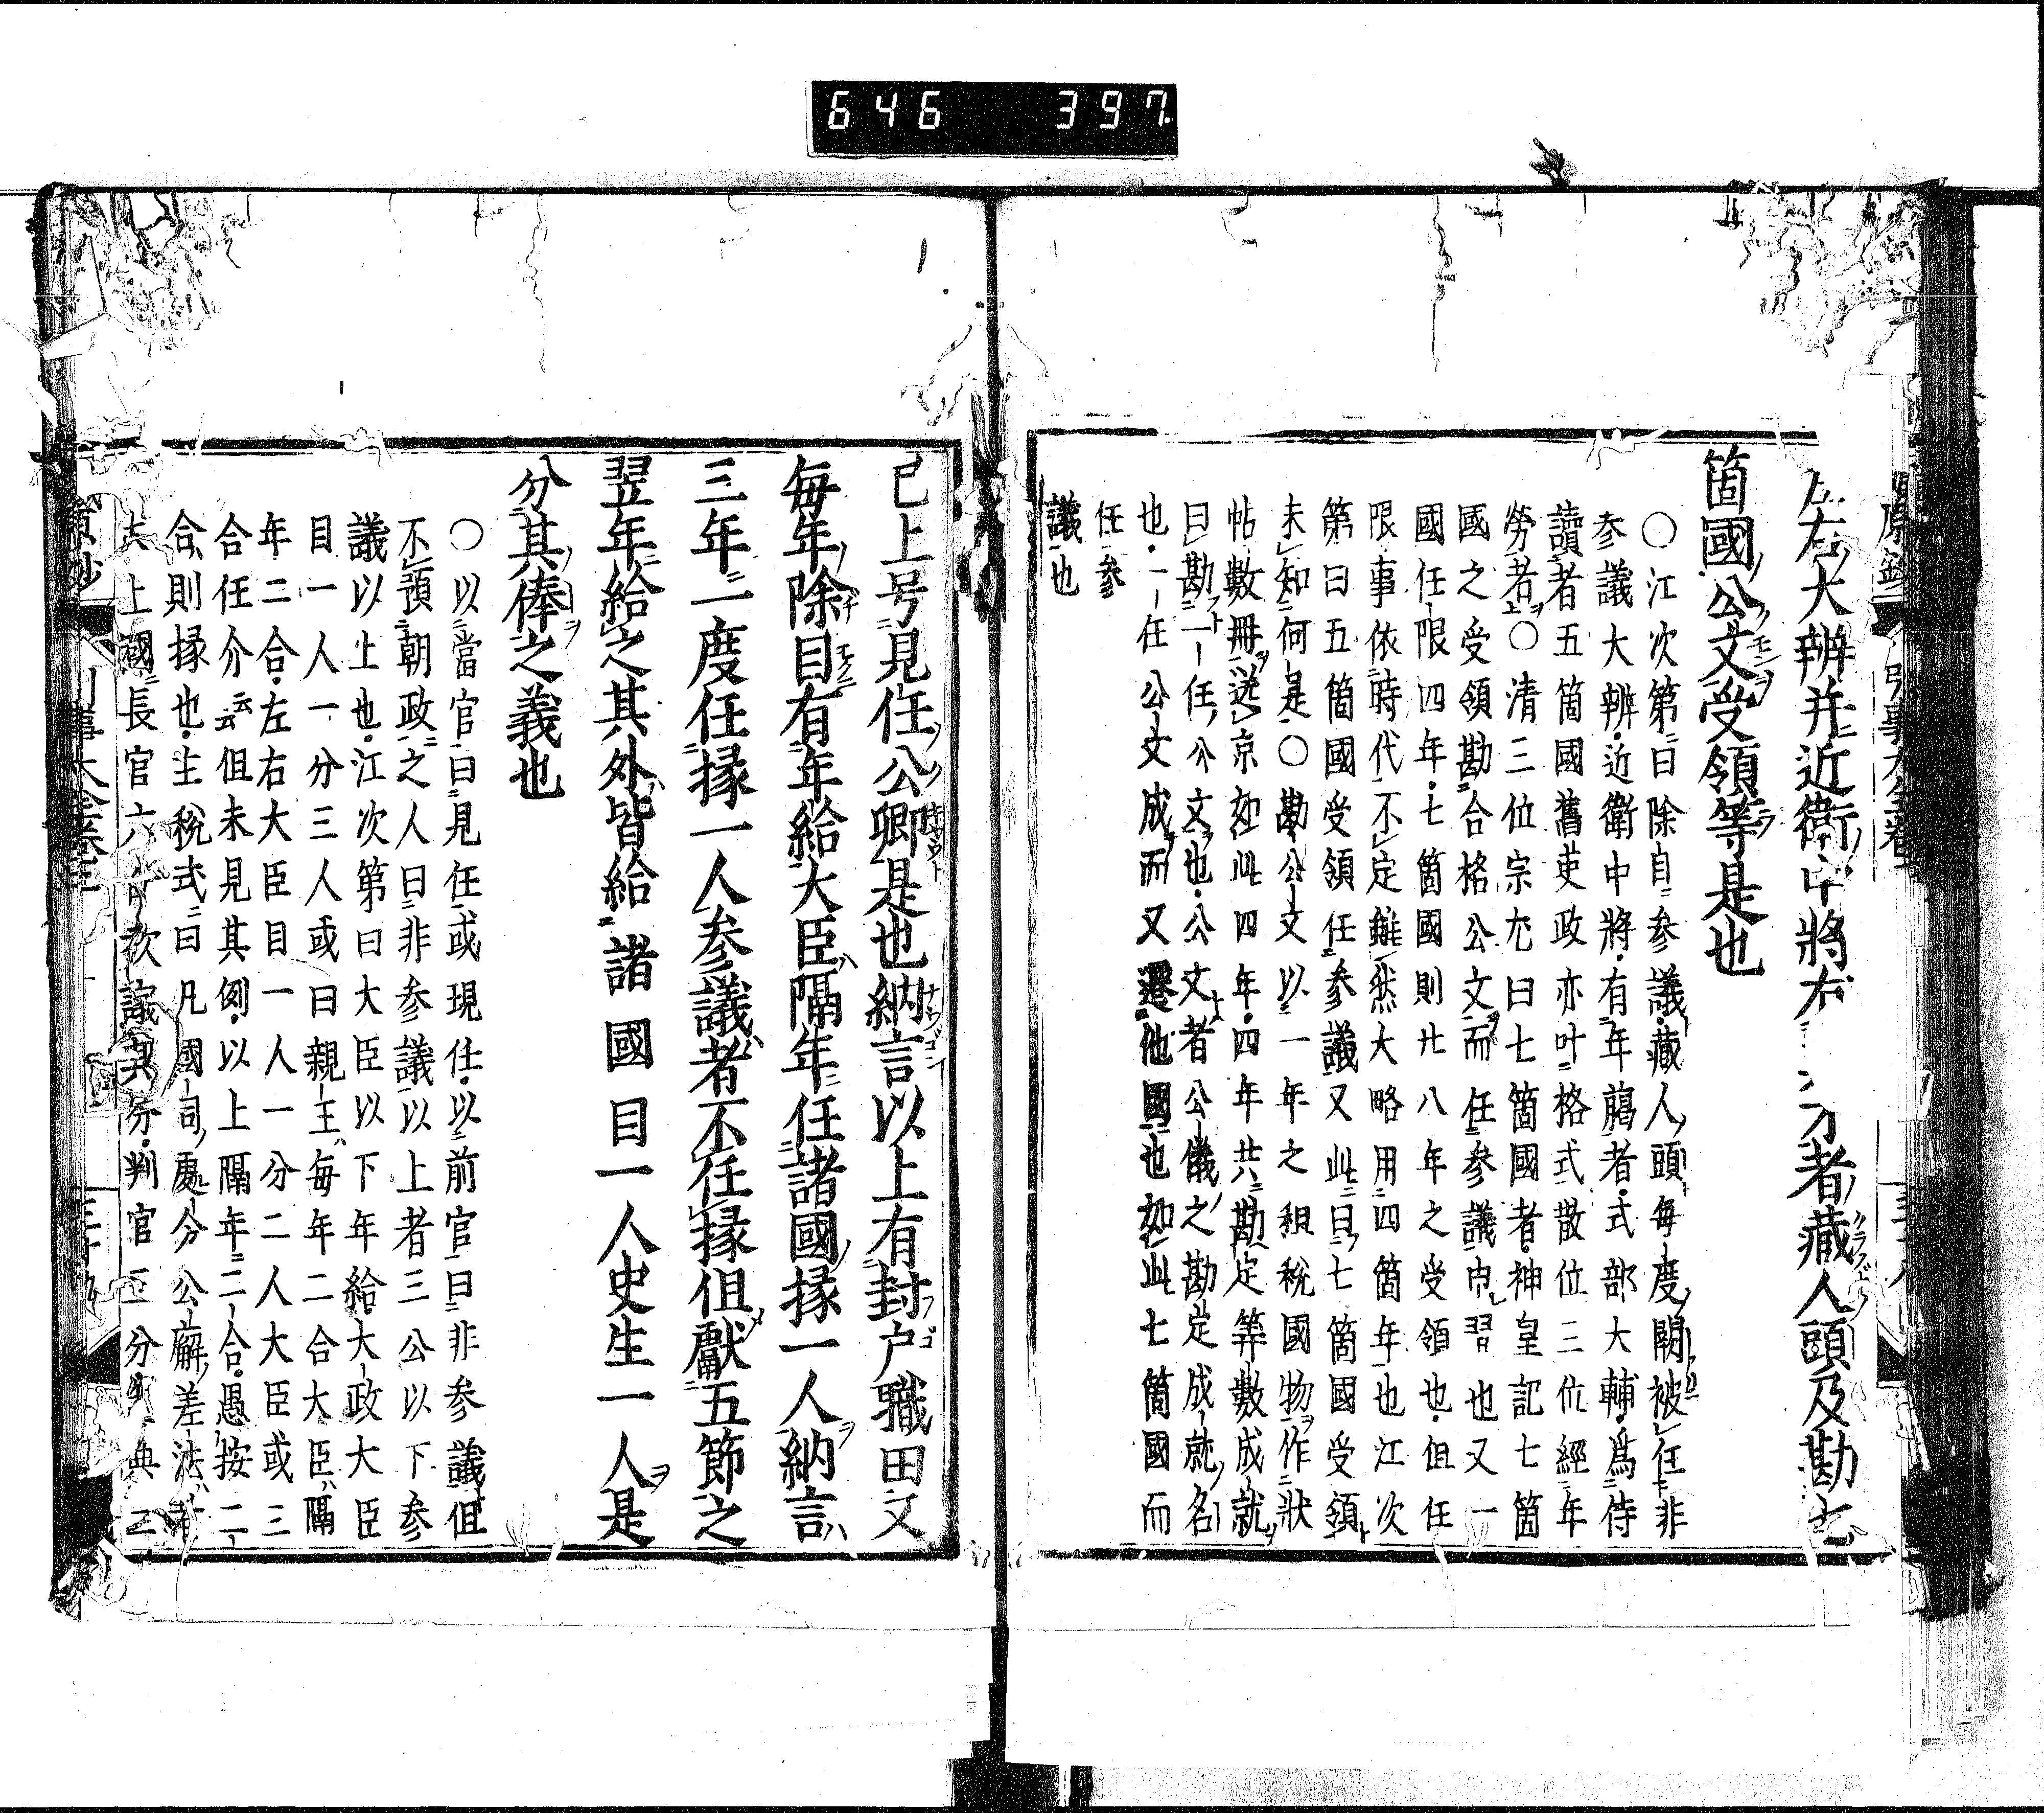 646 397
左右大辨并近衛中將 者藏人頭及勘七
箇國公文受領等是也
〇江次第曰除自参議藏人頭毎度闕被任非
参議大辨近衛中將有年﨟者式部大輔爲侍
讀者五箇國舊吏政亦叶格式散位三位經年
勞者〇清三位宗尤曰七箇國者神皇記七箇
國之受領勘合格公文而任参議申習也又一
國任限四年七箇國則廿八年之受領也但任
限事依時代不定雖然大略用四箇年也江次
第曰五箇國受領任参議又此曰七箇國受領
未知何是〇勘公文以一年之租税國物作狀
帖數冊送京如此四年四年共勘定筭數成就
曰勘一任公文也公文者公儀之勘定成就名
也一任公文成而又遷他國也如此七箇國而
任参
議也
已上号見任公卿是也納言以上有封户職田又
毎年除目有年給大臣隔年任諸國掾一人納言
三年二度任掾一人参議者不任掾但獻五節之
翌年給之其外皆給諸國目一人史生一人是
分其俸之義也
〇以當官曰見任或現任以前官曰非参議但
不預朝政之人曰非参議以上者三公以下参
議以上也江次第曰大臣以下年給大政大臣
目一人一分三人或曰親王毎年二合大臣隔
年二合左右大臣目一人一分二人大臣或三
合任介云云但未見其例以上隔年二合愚按二
合則掾也主税式曰凡國司處分公廨差法
大上國長官六分次官四分判官三分典二